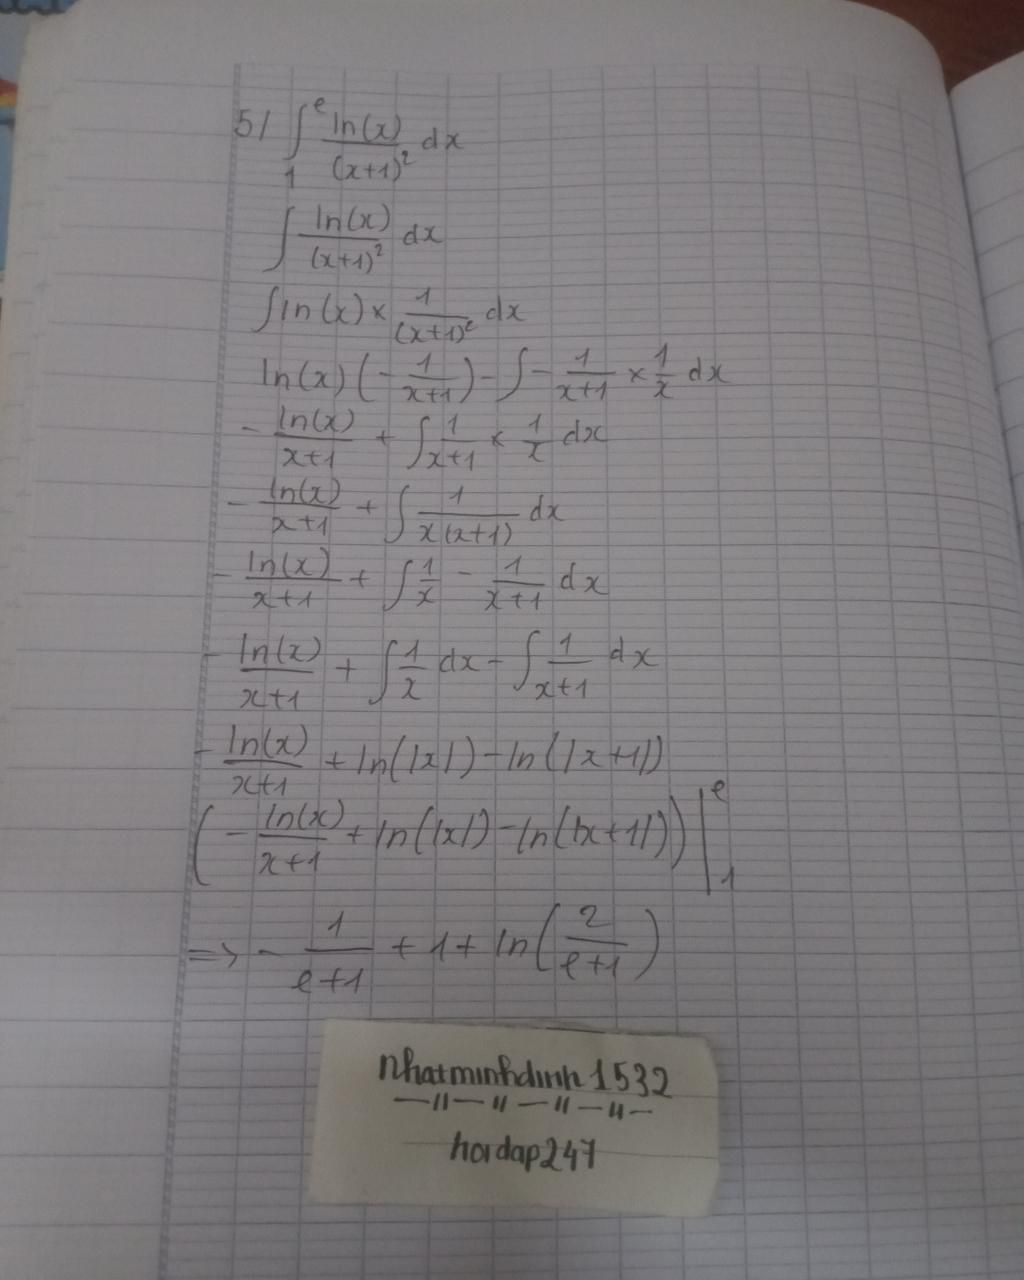 5/ ∫₁ᵉ ln(x)/(x+1)² dx
∫ ln(x)/(x+1)² dx
∫ln(x) × 1/(x+1)² dx
ln(x)(-1/(x+1)) - ∫ - 1/(x+1) × 1/x dx
- ln(x)/(x+1) + ∫ 1/(x+1) × 1/x dx
- ln(x)/(x+1) + ∫ 1/(x(x+1)) dx
- ln(x)/(x+1) + ∫ 1/x - 1/(x+1) dx
- ln(x)/(x+1) + ∫ 1/x dx - ∫ 1/(x+1) dx
- ln(x)/(x+1) + ln(|x|) - ln(|x+1|)
(- ln(x)/(x+1) + ln(|x|) - ln(|x+1|))|₁ᵉ
=> - 1/(e+1) + 1 + ln(2/(e+1))
nhatminhdinh1532
—〃—〃—〃—〃—
hoidap247